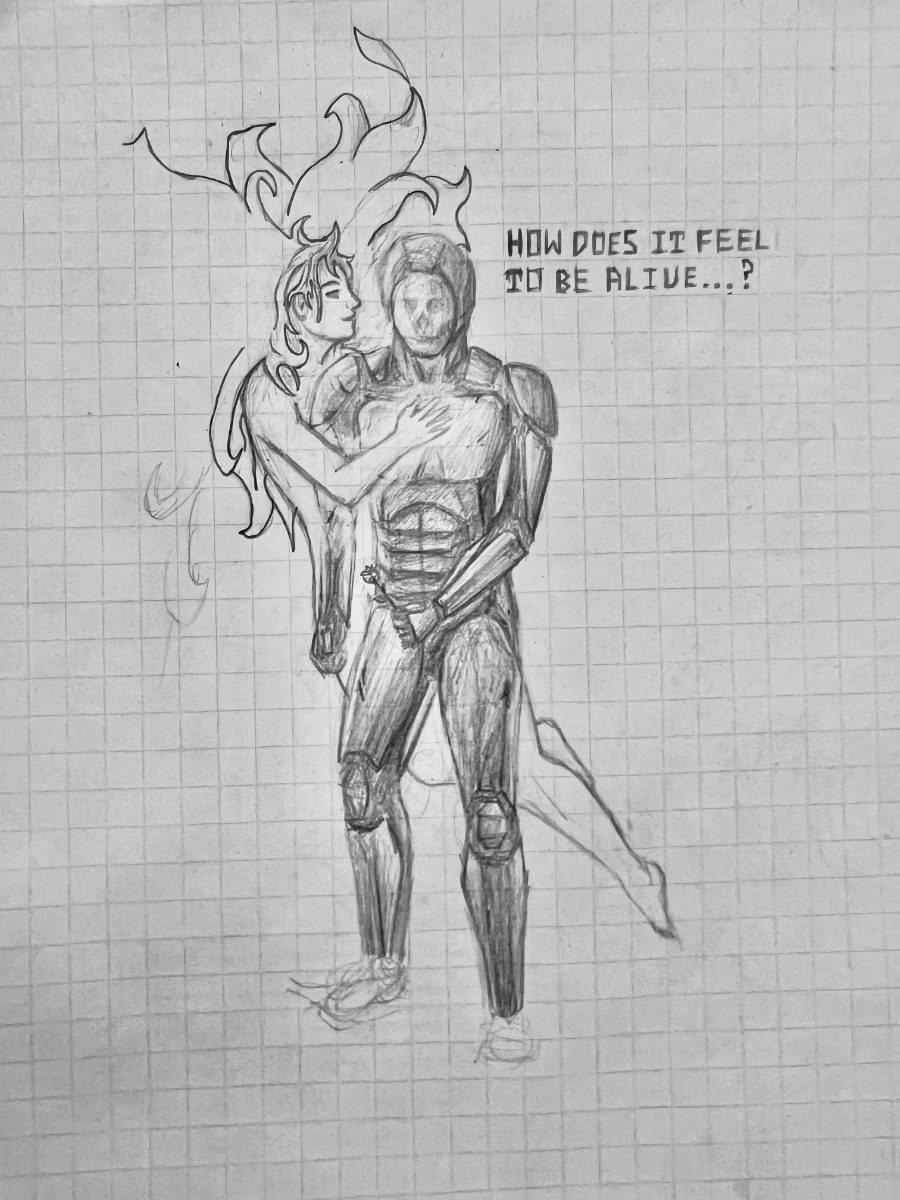 HOW DOES IT FEEL
TO BE ALIVE...?